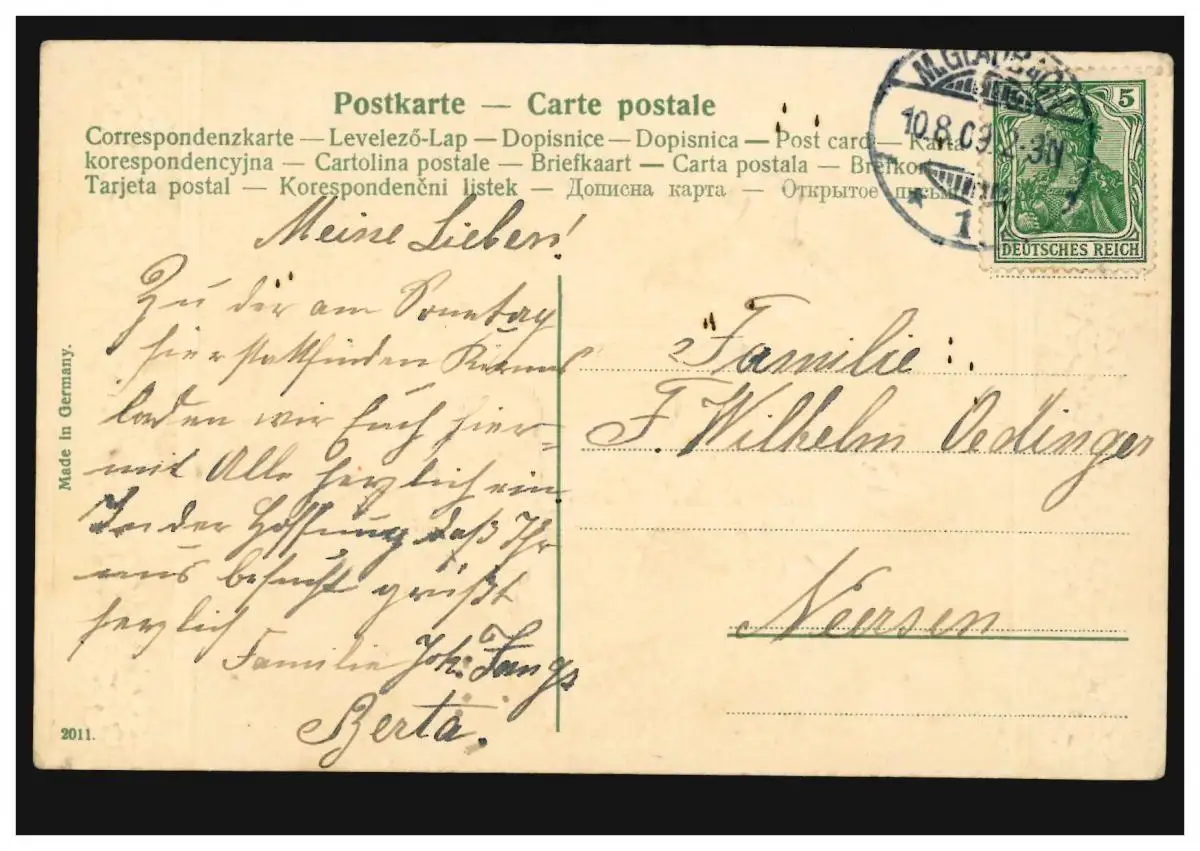 Postkarte — Carte postale
Correspondenzkarte — Levelező-Lap — Dopisnice — Dopisnica — Post card — Karta
korespondencyjna — Cartolina postale — Briefkaart — Carta postala — Brefkor
Tarjeta postal — Korespondenčni listek — Дописна карта — Открытое письмо
M.GLADBACH
10.8.09. 2-3N
* 1
5
DEUTSCHES REICH
Meine Lieben!
Zu der am Sonntag
hier stattfinden Kirmes
laden wir Euch hier-
mit Alle herzlich ein
In der Hoffnung daß Ihr
uns besucht grüßt
herzlich
Familie Joh. Fangs
Berta.
Familie
F. Wilhelm Oedinger
Neersen
Made in Germany.
2011.